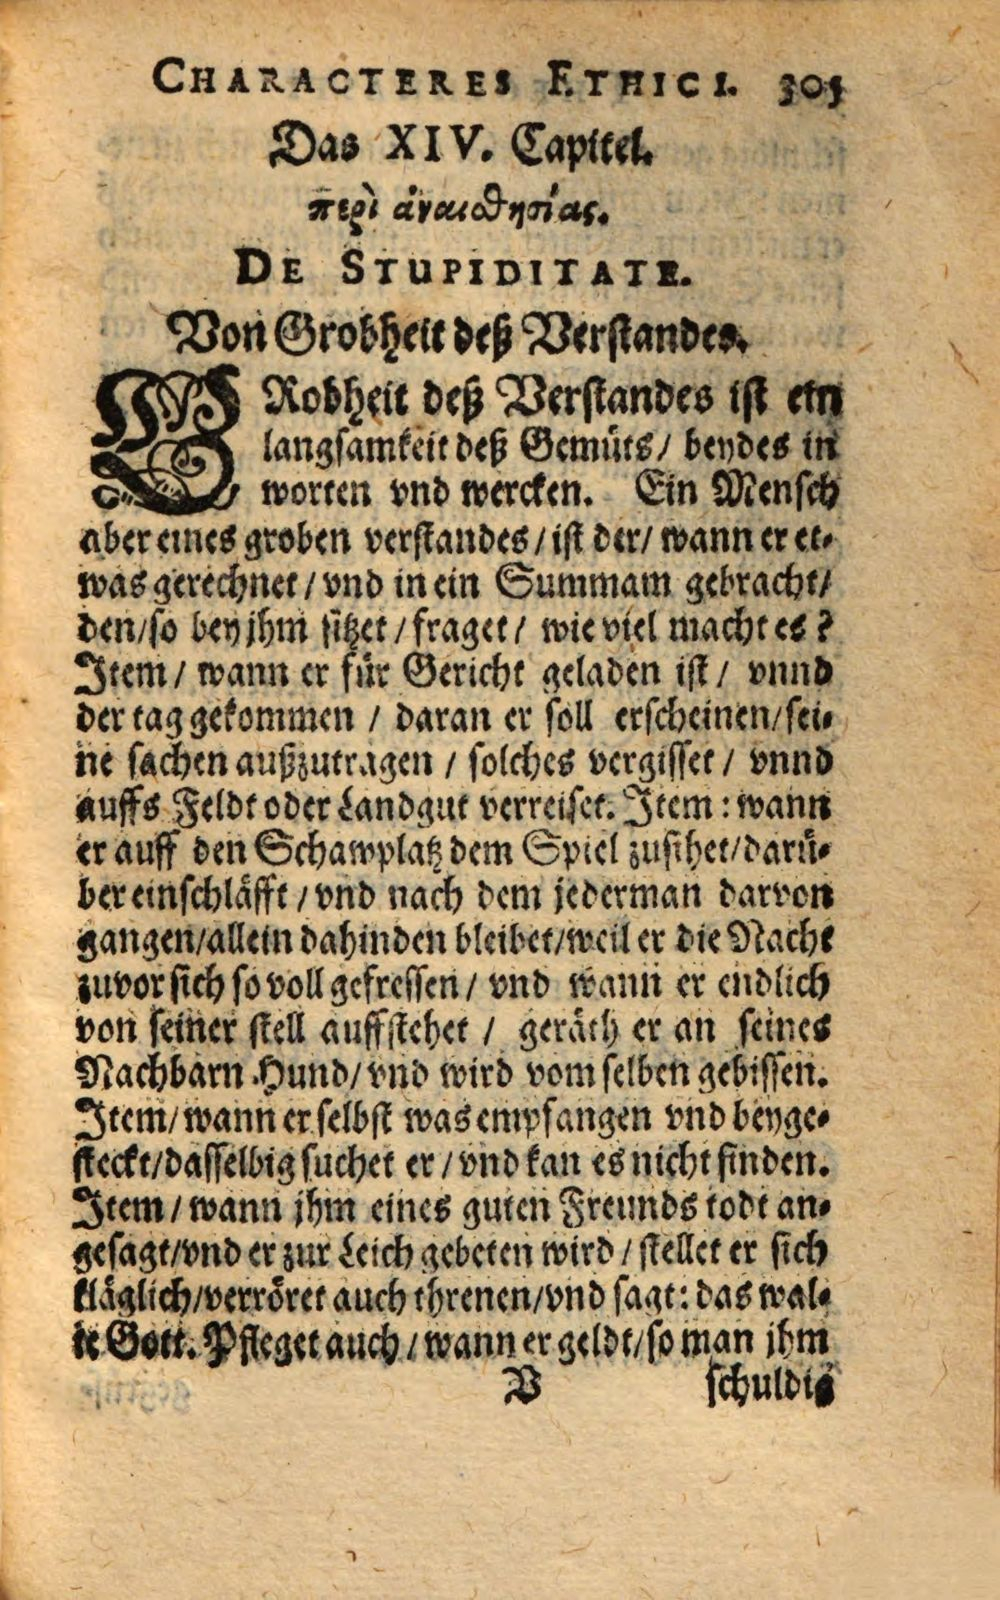 CHARACTERES ETHICI. 305
Das XIV. Capitel.
περὶ ἀναισθησίας.
DE STUPIDITATE.
Von Grobheit deß Verstandes.
GRobheit deß Verstandes ist ein
langsamkeit deß Gemüts/ beydes in
worten vnd wercken. Ein Mensch
aber eines groben verstandes/ist der/ wann er et-
was gerechnet/ vnd in ein Summam gebracht/
den/so bey jhm sitzet/fraget/ wie viel macht es?
Item/ wann er für Gericht geladen ist/ vnnd
der tag gekommen / daran er soll erscheinen/sei-
ne sachen außzutragen / solches vergisset/ vnnd
auffs Feldt oder Landgut verreiset. Item: wann
er auff den Schawplatz dem Spiel zusihet/darü-
ber einschläfft/ vnd nach dem jederman darvon
gangen/allein dahinden bleibet/weil er die Nacht
zuvor sich so voll gefressen/ vnd wann er endlich
von seiner stell auffstehet / geräth er an seines
Nachbarn Hund/ vnd wird vom selben gebissen.
Item/wann er selbst was empfangen vnd beyge-
steckt/dasselbig suchet er/vnd kan es nicht finden.
Item/ wann jhm eines guten Freunds todt an-
gesagt/vnd er zur Leich gebeten wird/ stellet er sich
kläglich/verröret auch threnen/vnd sagt: das wal-
te Gott. Pfleget auch/wann er geldt/so man jhm
V schuldig